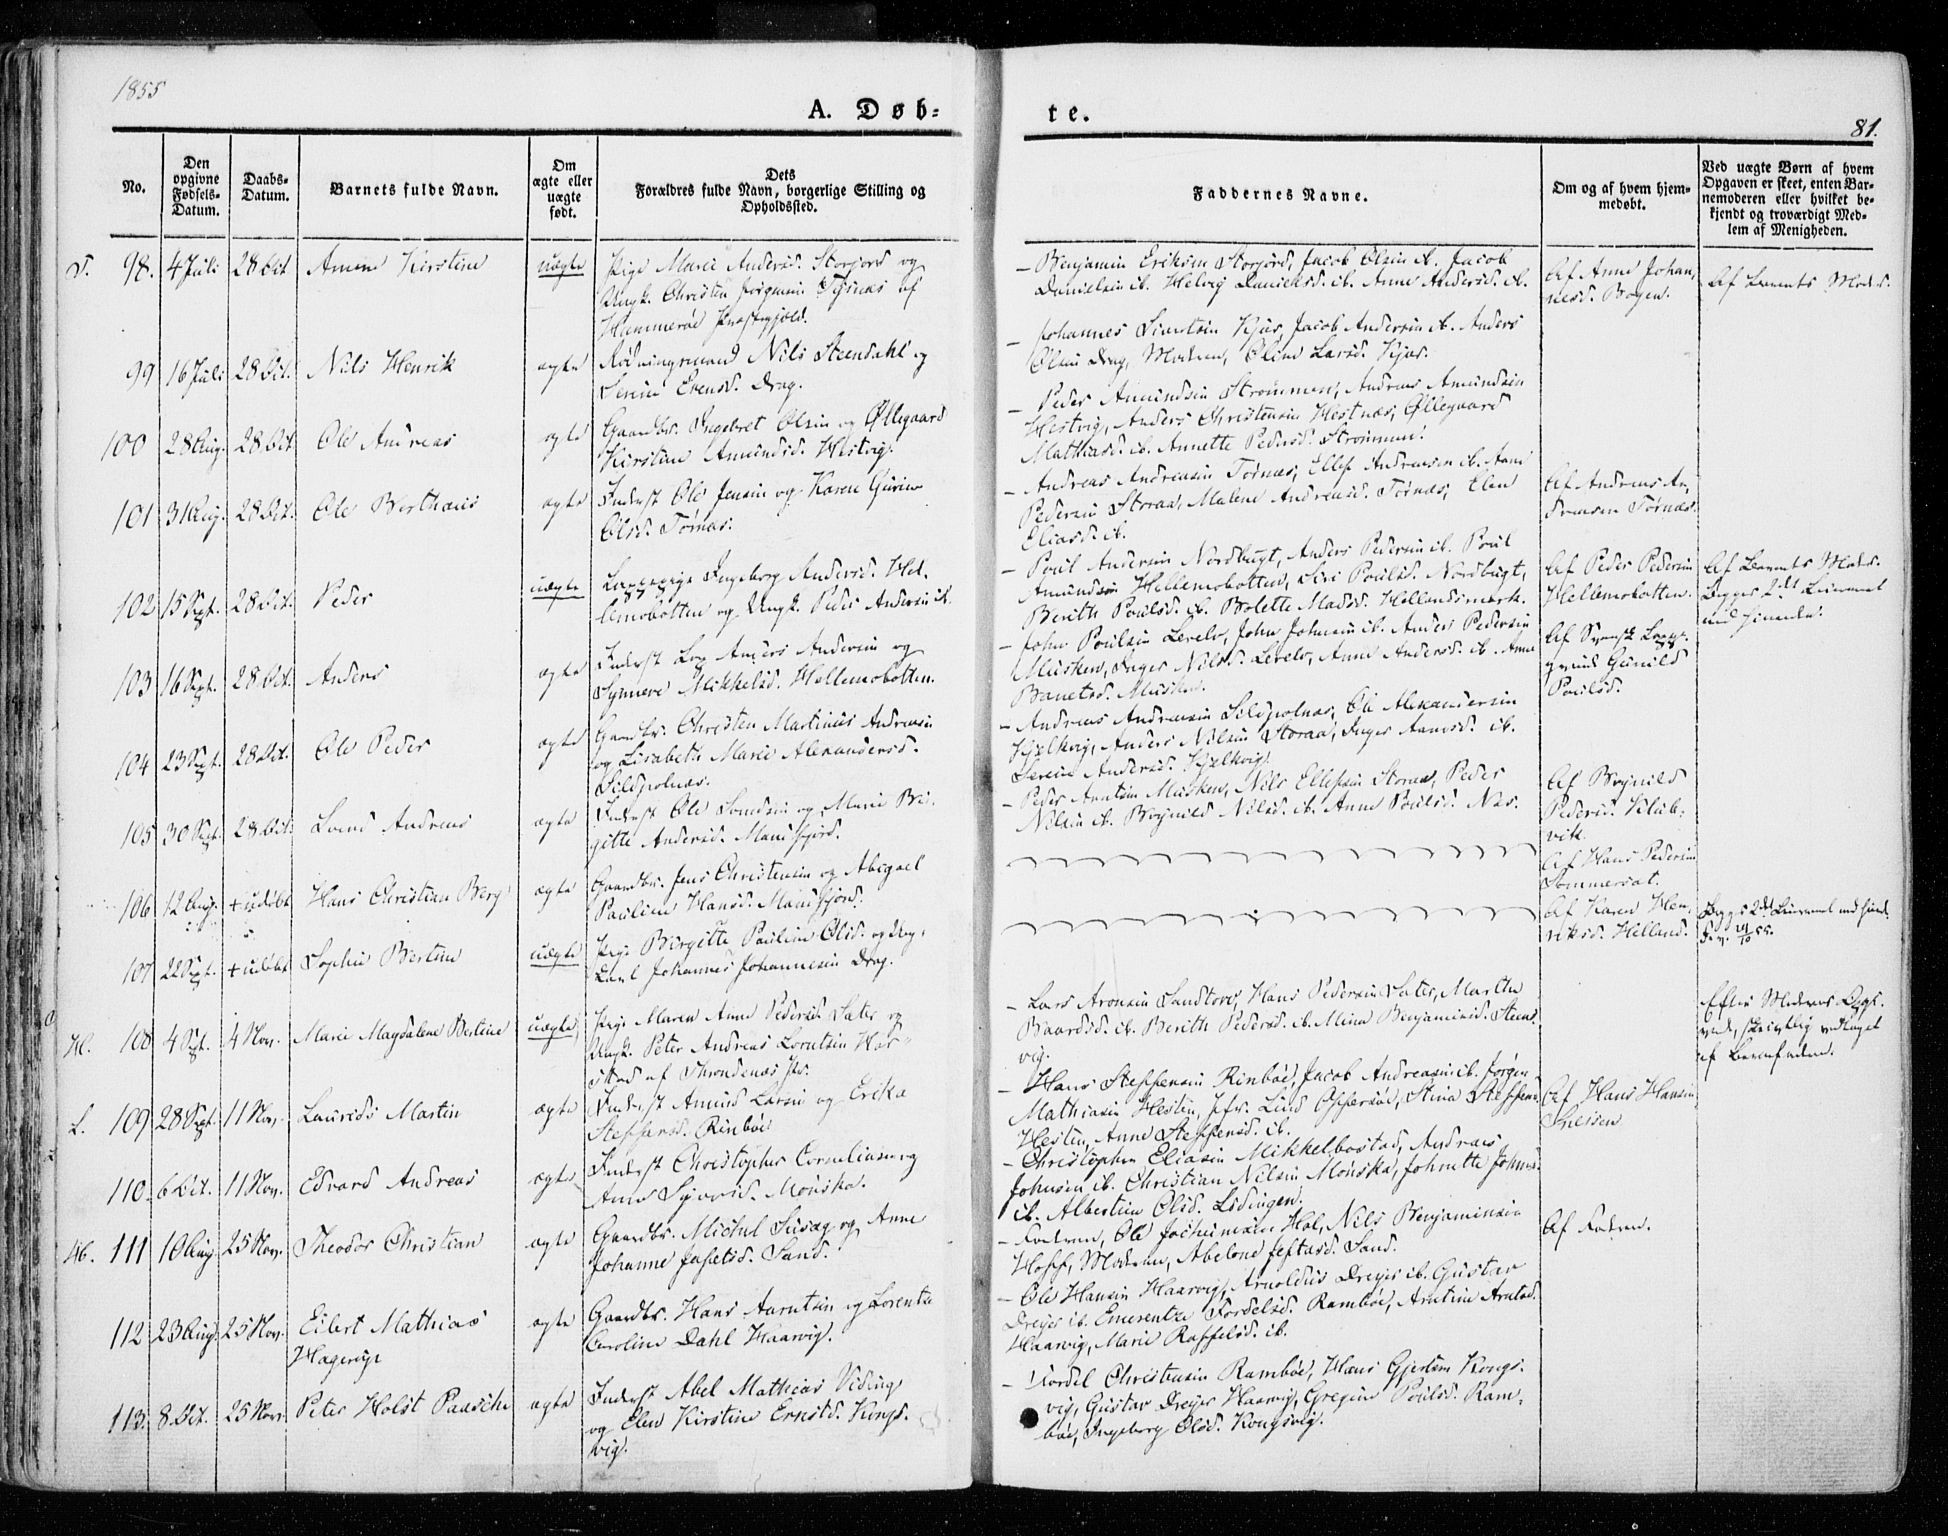 1855
A. Døb-
te.
81.
No.
Den
opgivne
Fødsels-
Datum.
Daabs-
Datum.
Barnets fulde Navn.
Om
ægte eller
uægte
født.
Dets
Forældres fulde Navn, borgerlige Stilling og
Opholdssted.
Faddernes Navne.
Om og af hvem hjem-
medøbt.
Ved uægte Børn af hvem
Opgaven er skeet, enten Bar-
nemoderen eller hvilket be-
kjendt og troværdigt Med-
lem af Menigheden.
98. 4 Juli 28 Oct Kirstine uægte Pige Marie Andersd. Storjord og
Ungk. Christen Tysnæs af
Hammerøe Præstegjeld.
Benjamin Eriksen Storjord, Jacob Olsen ib. Jacob
Danielsen ib. Helvig Danielsd. ib. Anne Andersd. ib.
Af Anne Johan-
nesd. Bogen.
Af Barnets Moder.
99 16 Juli 28 Oct. Nils Henrik ægte Nils Steendahl og
Evensd. Drag.
Johannes Kjær, Jacob Andersen ib. Anders
Olsen Drag, Moderen, Oline Larsd. Kjær.
100 28 Aug. 28 Oct Ole Andreas ægte Gaardbr. Ingebret Olsen og Øllegaard
Kirstine Amundsd. Hestvig.
Peder Amundsen Strømmen, Andreas Amundsen
Hestvig, Anders Christensen Hestnæs, Øllegaard
Mathiasd. ib. Annette Pedersd. Strømmen.
101 31 Aug. 28 Oct. Ole Berthæus ægte Inderst Ole Jensen og Karen Gurine
Olsd. Tørnæs.
Andreas Andreasen Tørnæs, Ellef Andreasen ib. Arne
Pedersen Storaa, Malene Andreasd. Tørnæs, Elen
Eliasd. ib.
Af Andreas An-
dreasen Tørnæs.
102 15 Sept. 28 Oct. Peder uægte Lappepige Ingeborg Andersd. Hel-
lemobotten og Ungk. Peder Andersen ib.
Poul Andersen Nordbugt, Anders Pedersen ib. Poul
Amundsen Hellemobotten, Siri Poulsd. Nordbugt,
Berith Poulsd. ib. Bolette Madsd. Hellandsmark.
Af Peder Pedersen
Hellemobotten.
Af Barnets Moder.
Begges 2det Leiermaal
103 16 Sept. 28 Oct. Anders ægte Inderst Lap Anders Andersen og
Synneve Mikkelsd. Hellemobotten.
John Poulsen Lerelv, John Johnsen ib. Anders Pedersen
Musken, Inger Nilsd. Lerelv, Anne Andersd. ib. Anne
Musken.
Af Svensk Lappe-
Gunild
Poulsd.
104 23 Sept. 28 Oct. Ole Peder ægte Gaardbr. Christen Martinus Andreasen
og Lisabeth Marie Alexandersd.
Sildpolnæs.
Andreas Andreasen Sildpolnæs, Ole Alexandersen
Kjelkvig, Anders Nilsen Storaa, Inger ib.
Andersd. Kjelkvig.
105 30 Sept. 28 Oct. Andreas ægte Inderst Ole og Marie Bri-
gitte Andersd. Mandfjord.
Peder Musken, Nils Ellefsen Storaa, Peder
Nilsen ib. Nilsd. ib. Anne Poulsd. Næs.
Pedersd.
vik.
106 12 Aug. + udøbt Hans Christian Berg ægte Gaardbr. Jens Christensen og Abigael
Pauline Hansd. Mandfjord.
Af Hans Pedersen
Sommerset.
107 22 Sept. + udøbt Sophie Bertine uægte Pige Birgitte Pauline Olsd. og Ung-
karl Johannes Johannesen Drag.
Af Karen Hen-
riksd. Helland.
108 4 Sept. 4 Nov. Marie Magdalene Bertine uægte Pige Maren Anne Pedersd. Sæter og
Ungk. Peter Andreas Lorntsen Har-
stad af Throndenæs Pr.
Lars Aronsen Sandtorv, Hans Pedersen Sæter, Marthe
Baardsd. ib. Berith Pedersd. ib. Mina Benjaminsd. Steens-
vig.
Efter Moderens Opgi-
vende, skriftlig vedtaget
af Barnefaderen.
L. 109 28 Sept. 11 Nov. Laurids Martin ægte Inderst Amund Larsen og Erika
Steffensd. Rinbøe
Hans Steffensen Rinbøe, Jacob Andreasen ib. Jørgen
Mathiasen Hesten, Jfr. Lind Offersøe, Stina Steffensd.
Hesten, Anne Steffensd. ib.
Af Hans Hansen
110. 6 Oct. 11 Nov. Edvard Andreas ægte Inderst Christopher Corneliusen og
Anne Monska.
Christopher Eliasen Mikkelbostad, Andreas
Johnsen ib. Christian Nilsen Monska, Johnette Johnsd.
ib. Albertine Olsd. Lødingen.
111 10 Aug 25 Nov. Theodor Christian ægte Gaardbr. Michel Susæg og Anne
Johanne Jeftasd. Sand.
Faderen, Ole Jochumsen Hol, Nils Benjaminsen
Hoff, Moderen, Abelone Jeftasd. Sand.
Af Faderen.
112 23 Aug. 25 Nov. Eilert Mathias
Hagerup ægte Gaardbr. Hans Arntsen og Lorentze
Caroline Dahl Haarvig.
Ole Hansen Haarvig, Arnoldus Dreyer ib. Gustav
Dreyer ib. Emerentze Fordelsd. Rambøe, Arntine Arntsd.
Haarvig, Marie Roffelsd. ib.
113. 8 Oct. 25 Nov. Peter Holst Paasche ægte Inderst Abel Mathias Viding
og Elen Kirstine Ernstd. Kongs-
vig.
Fordel Christensen Rambøe, Hans Gjertsen Kongs-
vig, Gustav Dreyer Haarvig, Gregine Poulsd. Ram-
bøe, Ingeborg Olsd. Kongsvig.